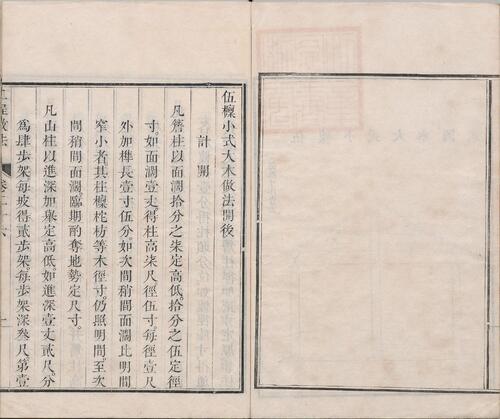 伍檁小式大木做法開後
計開
凡簷柱以面濶拾分之柒定高低拾分之伍定徑
寸如面濶壹丈得柱高柒尺徑伍寸每徑壹尺
外加榫長壹寸伍分如次間稍間面濶比明間
窄小者其柱檁柁枋等木徑寸仍照明間至次
間稍間面濶臨期酌奪地勢定尺寸
凡山柱以進深加舉定高低如進深壹丈貳尺分
爲肆步架每坡得貳步架每步架深叁尺第壹
工程做法
卷二十六
一